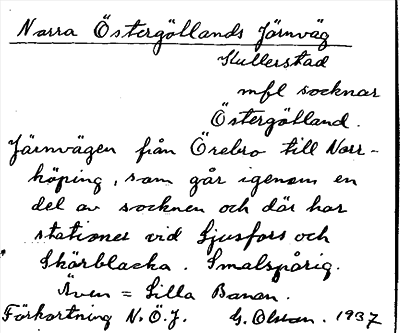 Norra Östergötlands Järnväg
Kullerstad
mfl socknar
Östergötland.
Järnvägen från Örebro till Norr-
köping, som går igenom en
del av socknen och där har
stationer vid Ljusfors och
Skärblacka. Smalspårig.
Även = Lilla Banan.
Förkortning N.Ö.J. G. Olsson. 1937